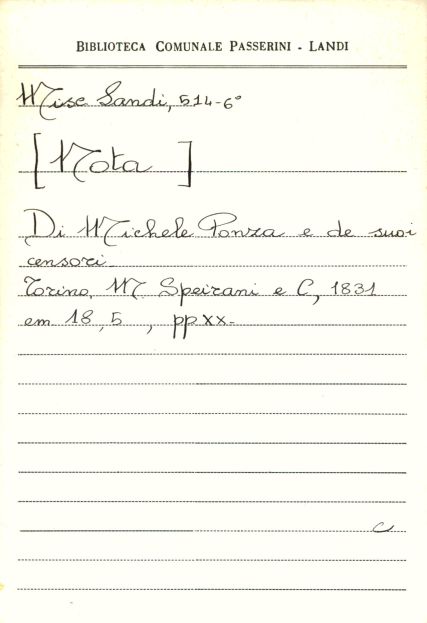 BIBLIOTECA COMUNALE PASSERINI - LANDI
Misc Landi, 514-6°
[Nota ]
Di Michele Ponza e de suoi
censori
Torino, M. Speirani e C, 1831
em 18,5 , pp XX-
C